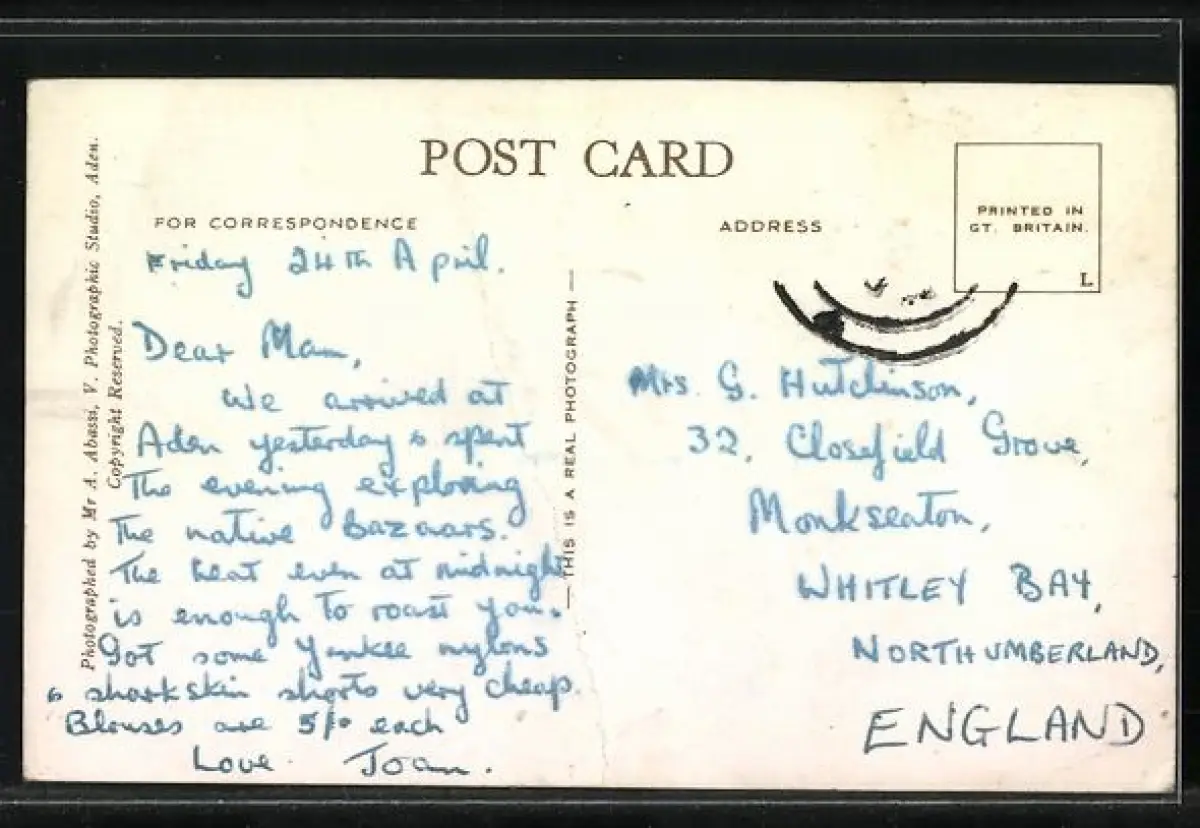 POST CARD
FOR CORRESPONDENCE
Friday 24th April.
Dear Mam,
We arrived at
Aden yesterday & spent
the evening exploring
the native bazaars.
The heat even at midnight
is enough to roast you.
Got some Yankee nylons
& sharkskin shorts very cheap.
Blouses are 5/- each
Love Joan.
Photographed by Mr A. Abassi, V. Photographic Studio, Aden.
Copyright Reserved.
— THIS IS A REAL PHOTOGRAPH —
ADDRESS
PRINTED IN
GT. BRITAIN.
L
Mrs. G. Hutchinson,
32, Closefield Grove,
Monkseaton,
WHITLEY BAY,
NORTHUMBERLAND,
ENGLAND